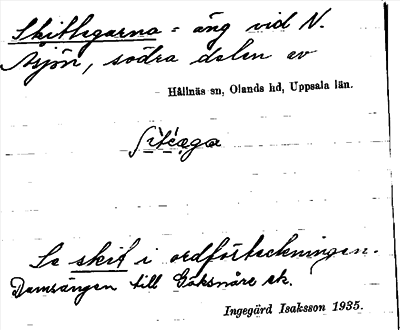 Skittegarna = äng vid N.
Åsjön, södra delen av
Hållnäs sn, Olands hd, Uppsala län.
Se skit i ordförteckningen.
Damsängen till Göksnåre sk.
Ingegärd Isaksson 1935.